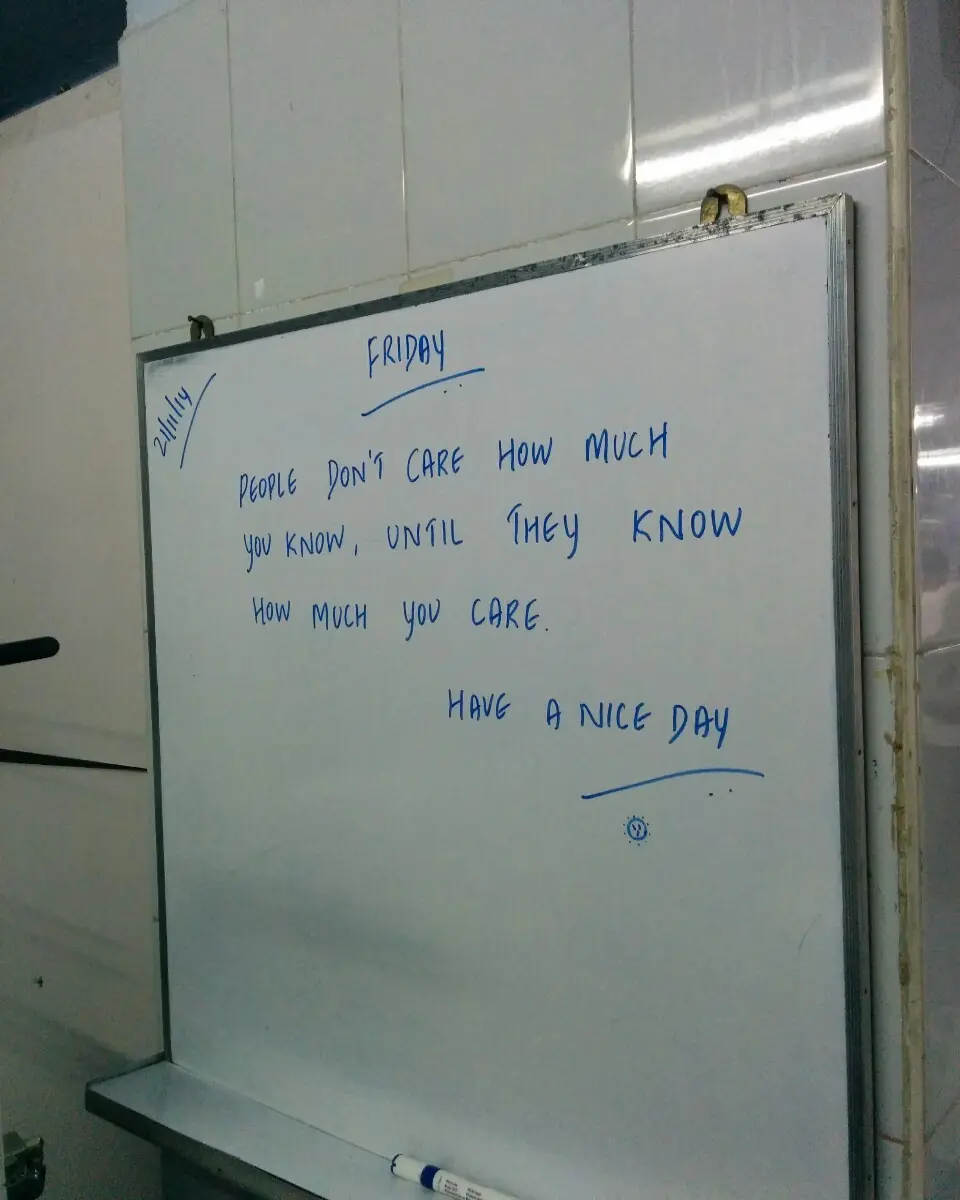 FRIDAY
21/11/14
PEOPLE DON'T CARE HOW MUCH
YOU KNOW, UNTIL THEY KNOW
HOW MUCH YOU CARE.
HAVE A NICE DAY